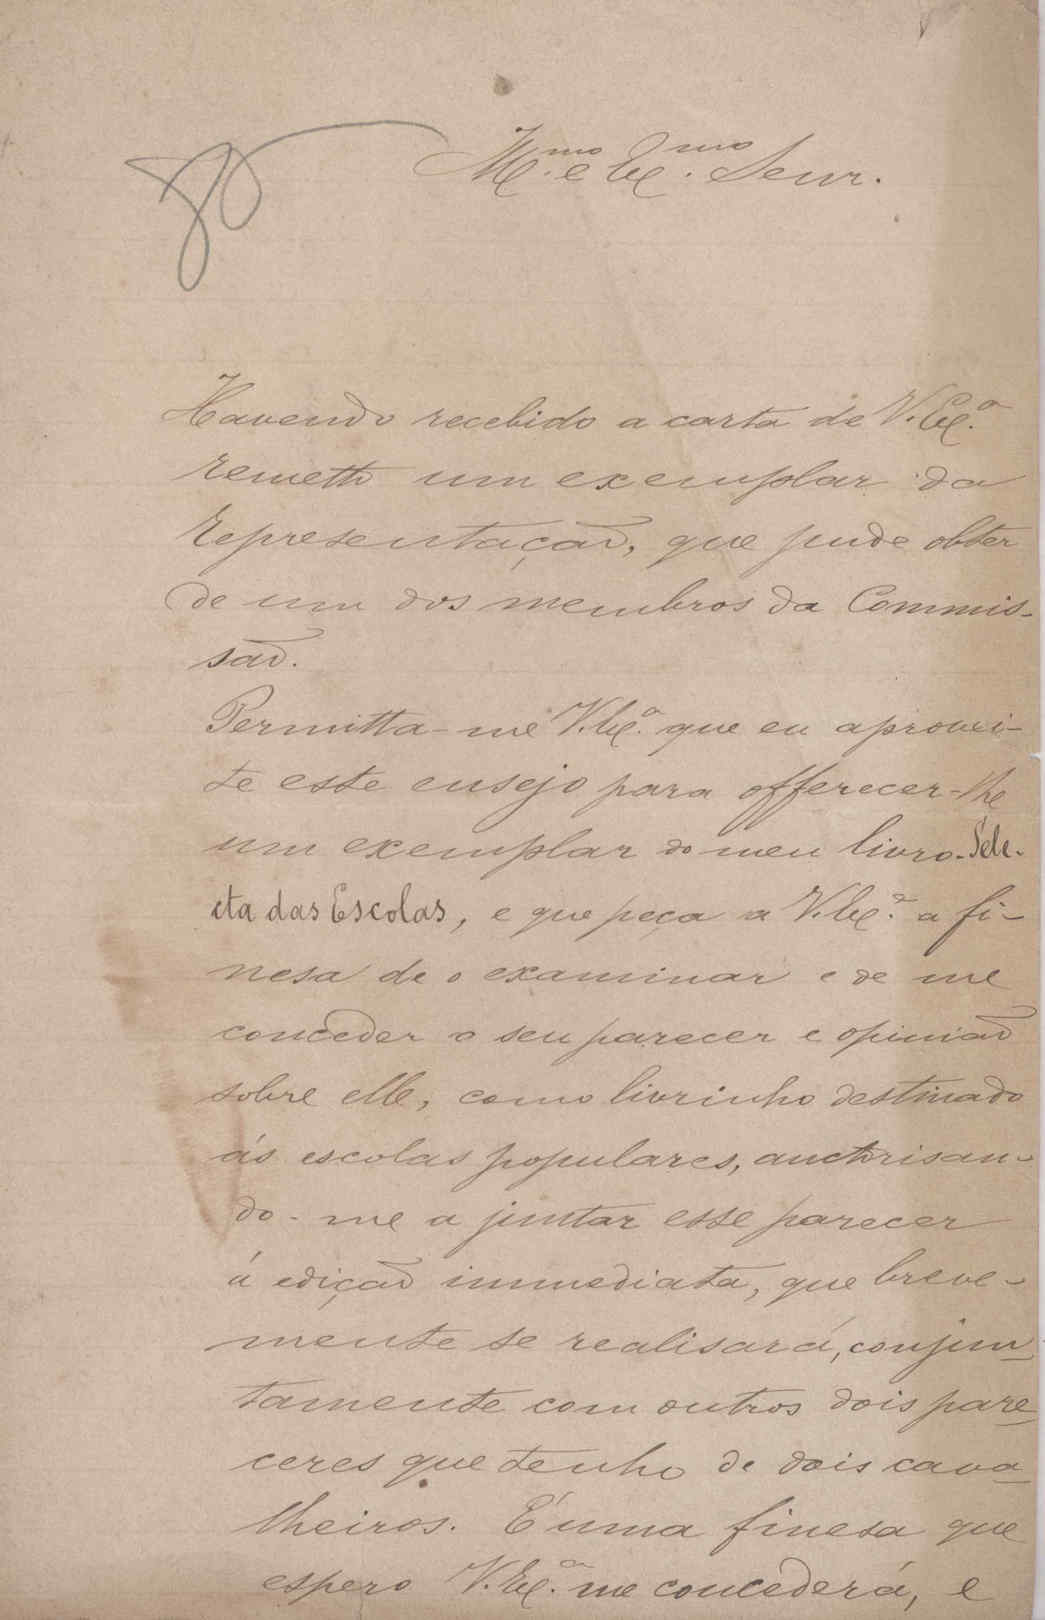 Ill.mo e Ex.mo Senr.
Havendo recebido a carta de V. Ex.a
remetto um exemplar da
representação, que pude obter
de um dos membros da Commis-
são.
Permitta-me V. Ex.a que eu aprovei-
te este ensejo para offerecer-lhe
um exemplar do meu livro - Sele-
cta das Escolas, e que peça a V. Ex.a a fi-
nesa de o examinar e de me
conceder o seu parecer e opinião
sobre elle, como livrinho destinado
ás escolas populares, auctorisan-
do-me a juntar esse parecer
á edição immediata, que breve-
mente se realisará, conjun-
tamente com outros dois pare-
ceres que tenho de dois cava-
lheiros. É uma finesa que
espero V. Ex.a me concederá, e